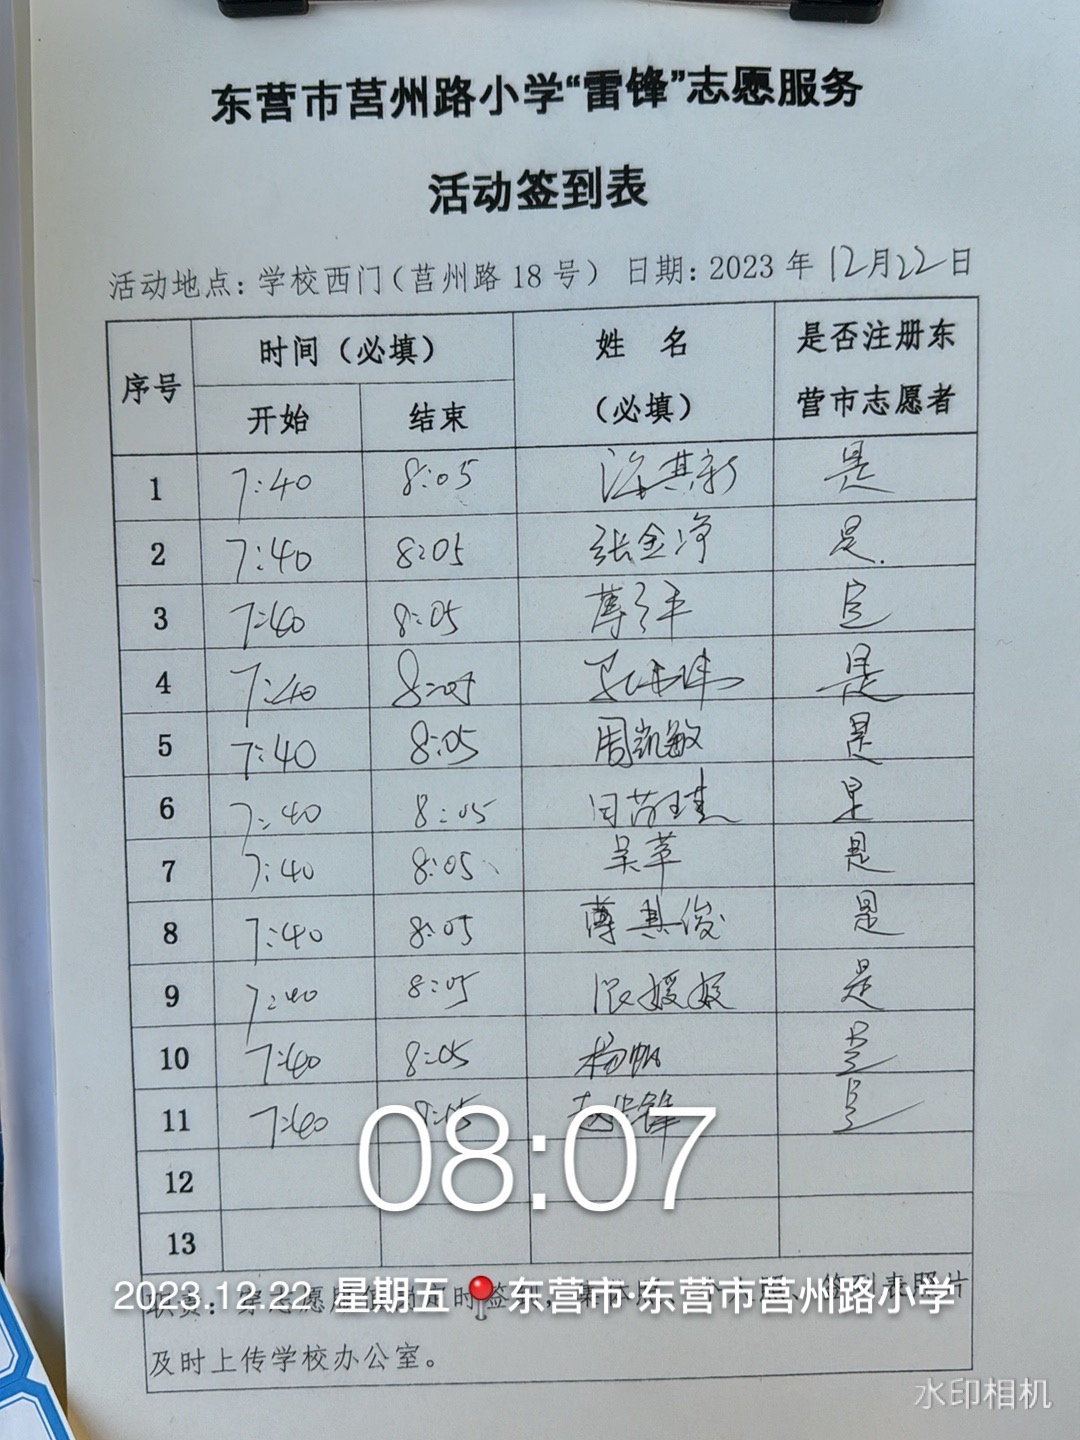 东营市莒州路小学“雷锋”志愿服务
活动签到表
活动地点：学校西门（莒州路 18 号） 日期：2023 年 12月22日
序号 时间（必填） 姓 名 是否注册东
开始 结束 （必填） 营市志愿者
1 7:40 8:05 其新 是
2 7:40 8:05 张金净 是.
3 7:40 8:05 是
4 7:40 8:05 是
5 7:40 8:05 周凯敏 是
6 7:40 8:05 是
7 7:40 8:05 吴苹 是
8 7:40 8:05 薄其俊 是
9 7:40 8:05 是
10 7:40 8:05 杨帆 是
11 7:40 8:05 是
12
13
08:07
2023.12.22 星期五 东营市·东营市莒州路小学
职责：
及时上传学校办公室。
水印相机